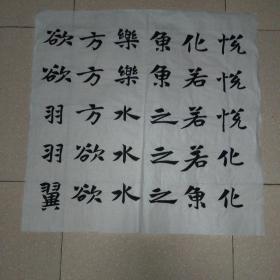 悦悦悦化化
化若若若魚
魚魚之之之
樂樂水水水
方方方欲欲
欲欲羽羽翼